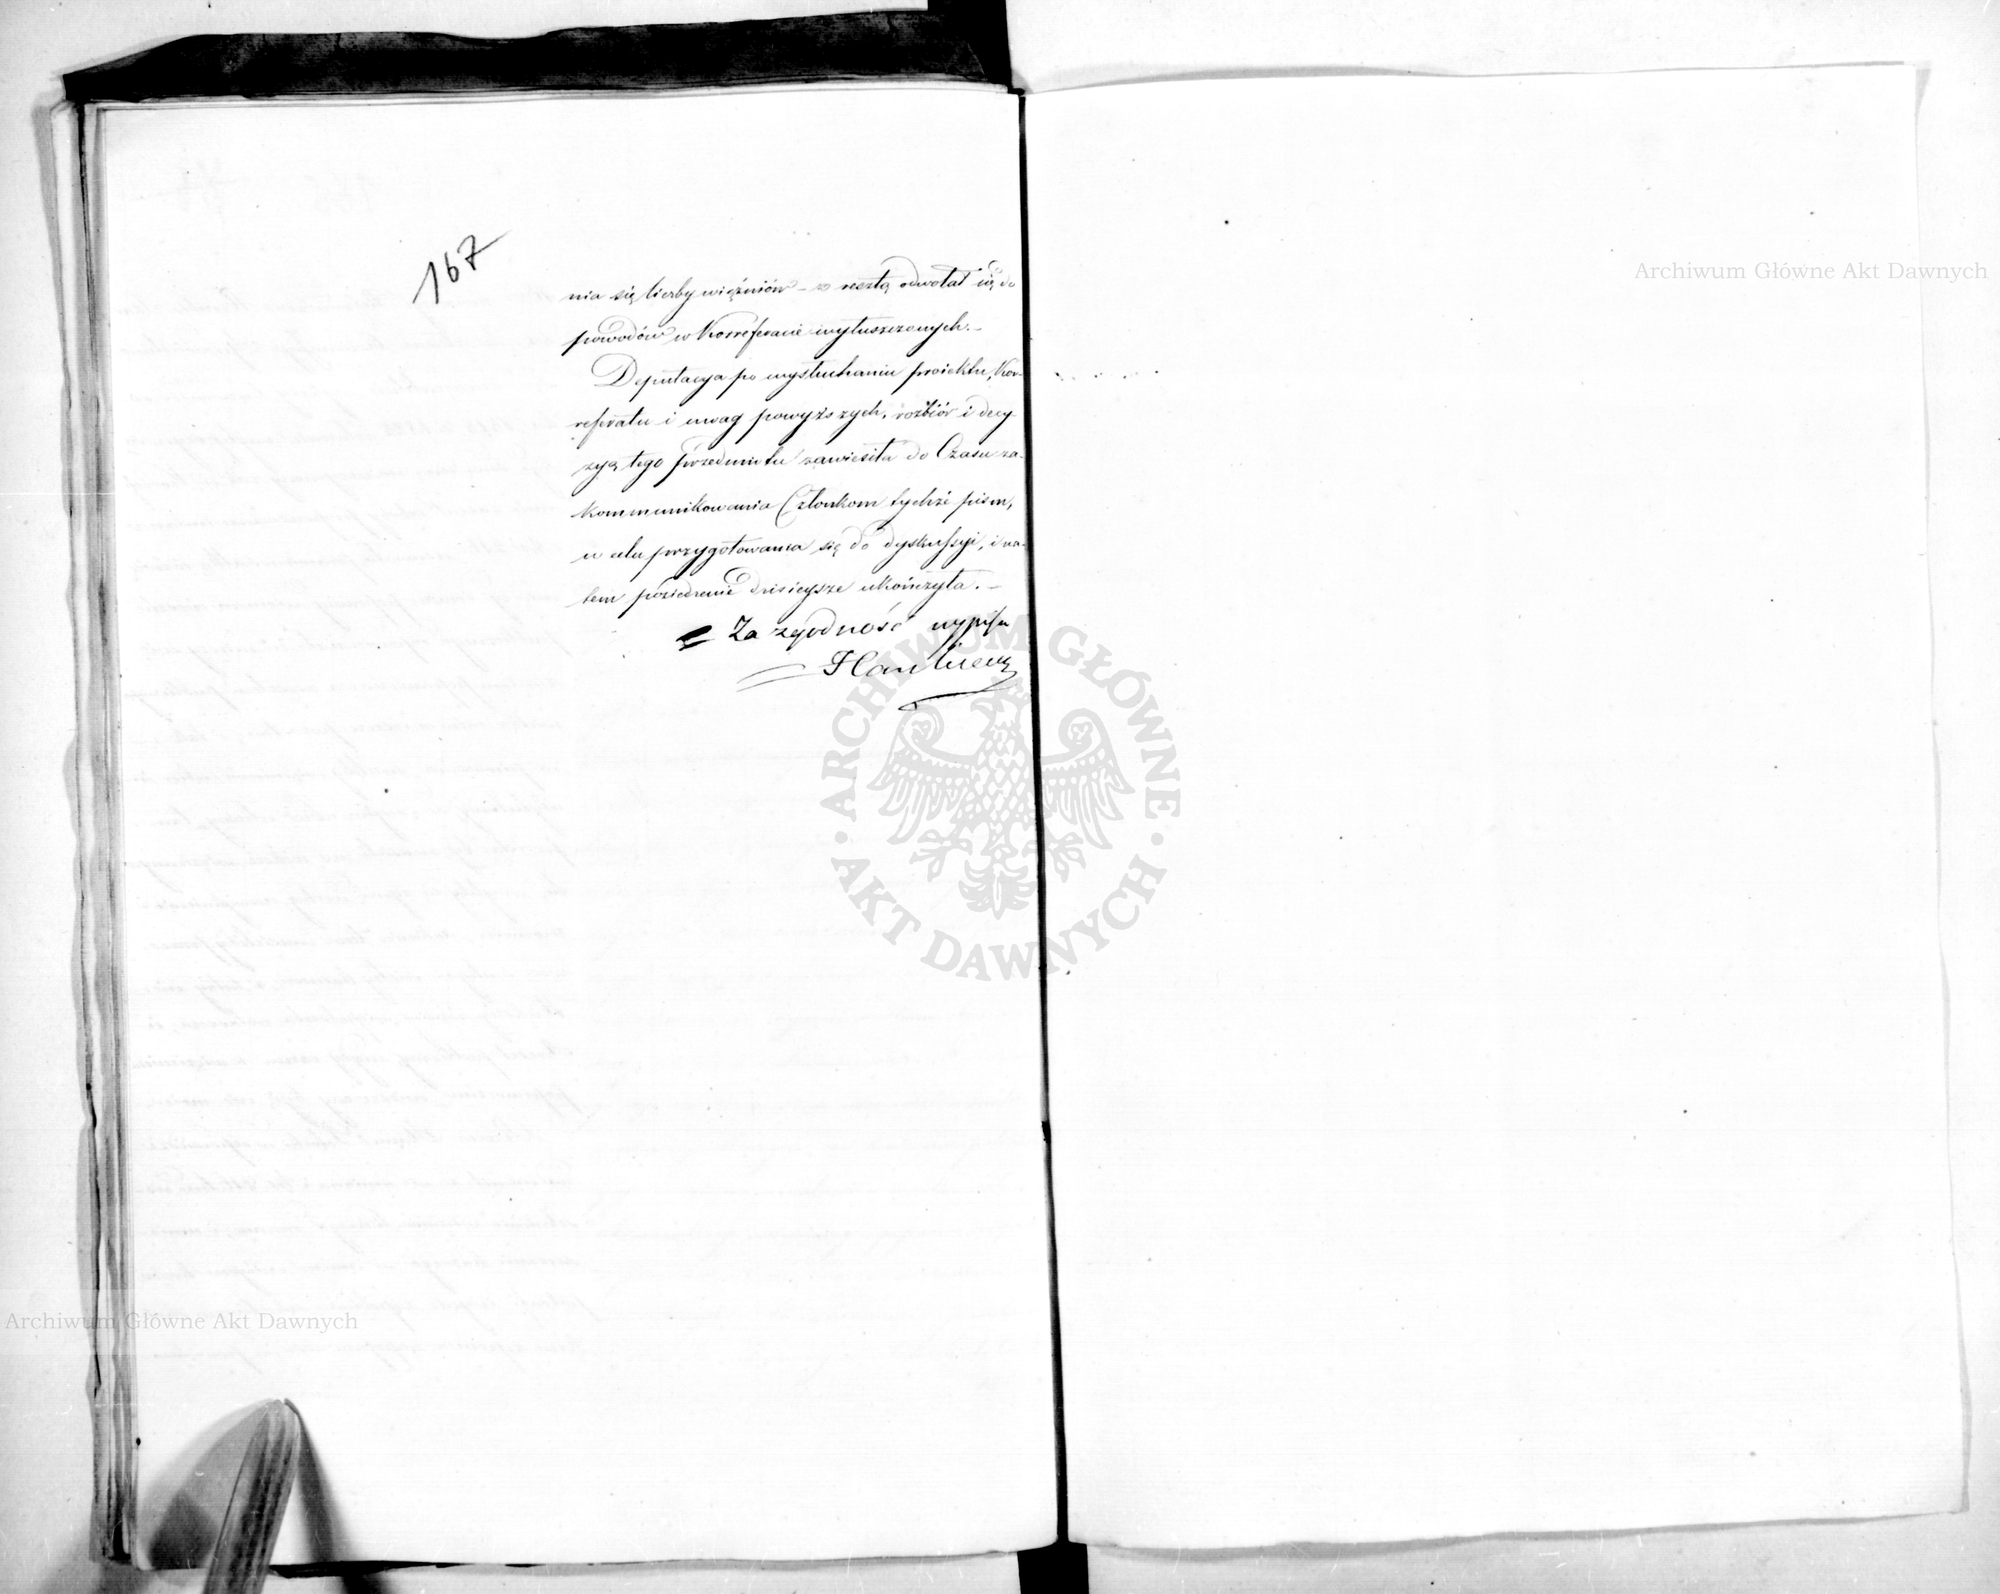 167
nia się liczby więźniów – w resztą odwołał się do
powodów w Korreferacie wyłuszczonych. –
Deputacya po wysłuchaniu proiektu, Kor-
referatu i uwag powyższych, rozbiór i decy-
zyą tego przedmiotu zawiesiła do Czasu za-
kommunikowania Członkom tychże pism,
w celu przygotowania się do dyskussyi, i na
tem posiedzenie dzisieysze ukończyła. –
Za zgodność wypisu
Archiwum Główne Akt Dawnych
ARCHIWUM GŁÓWNE
AKT DAWNYCH
Archiwum Główne Akt Dawnych